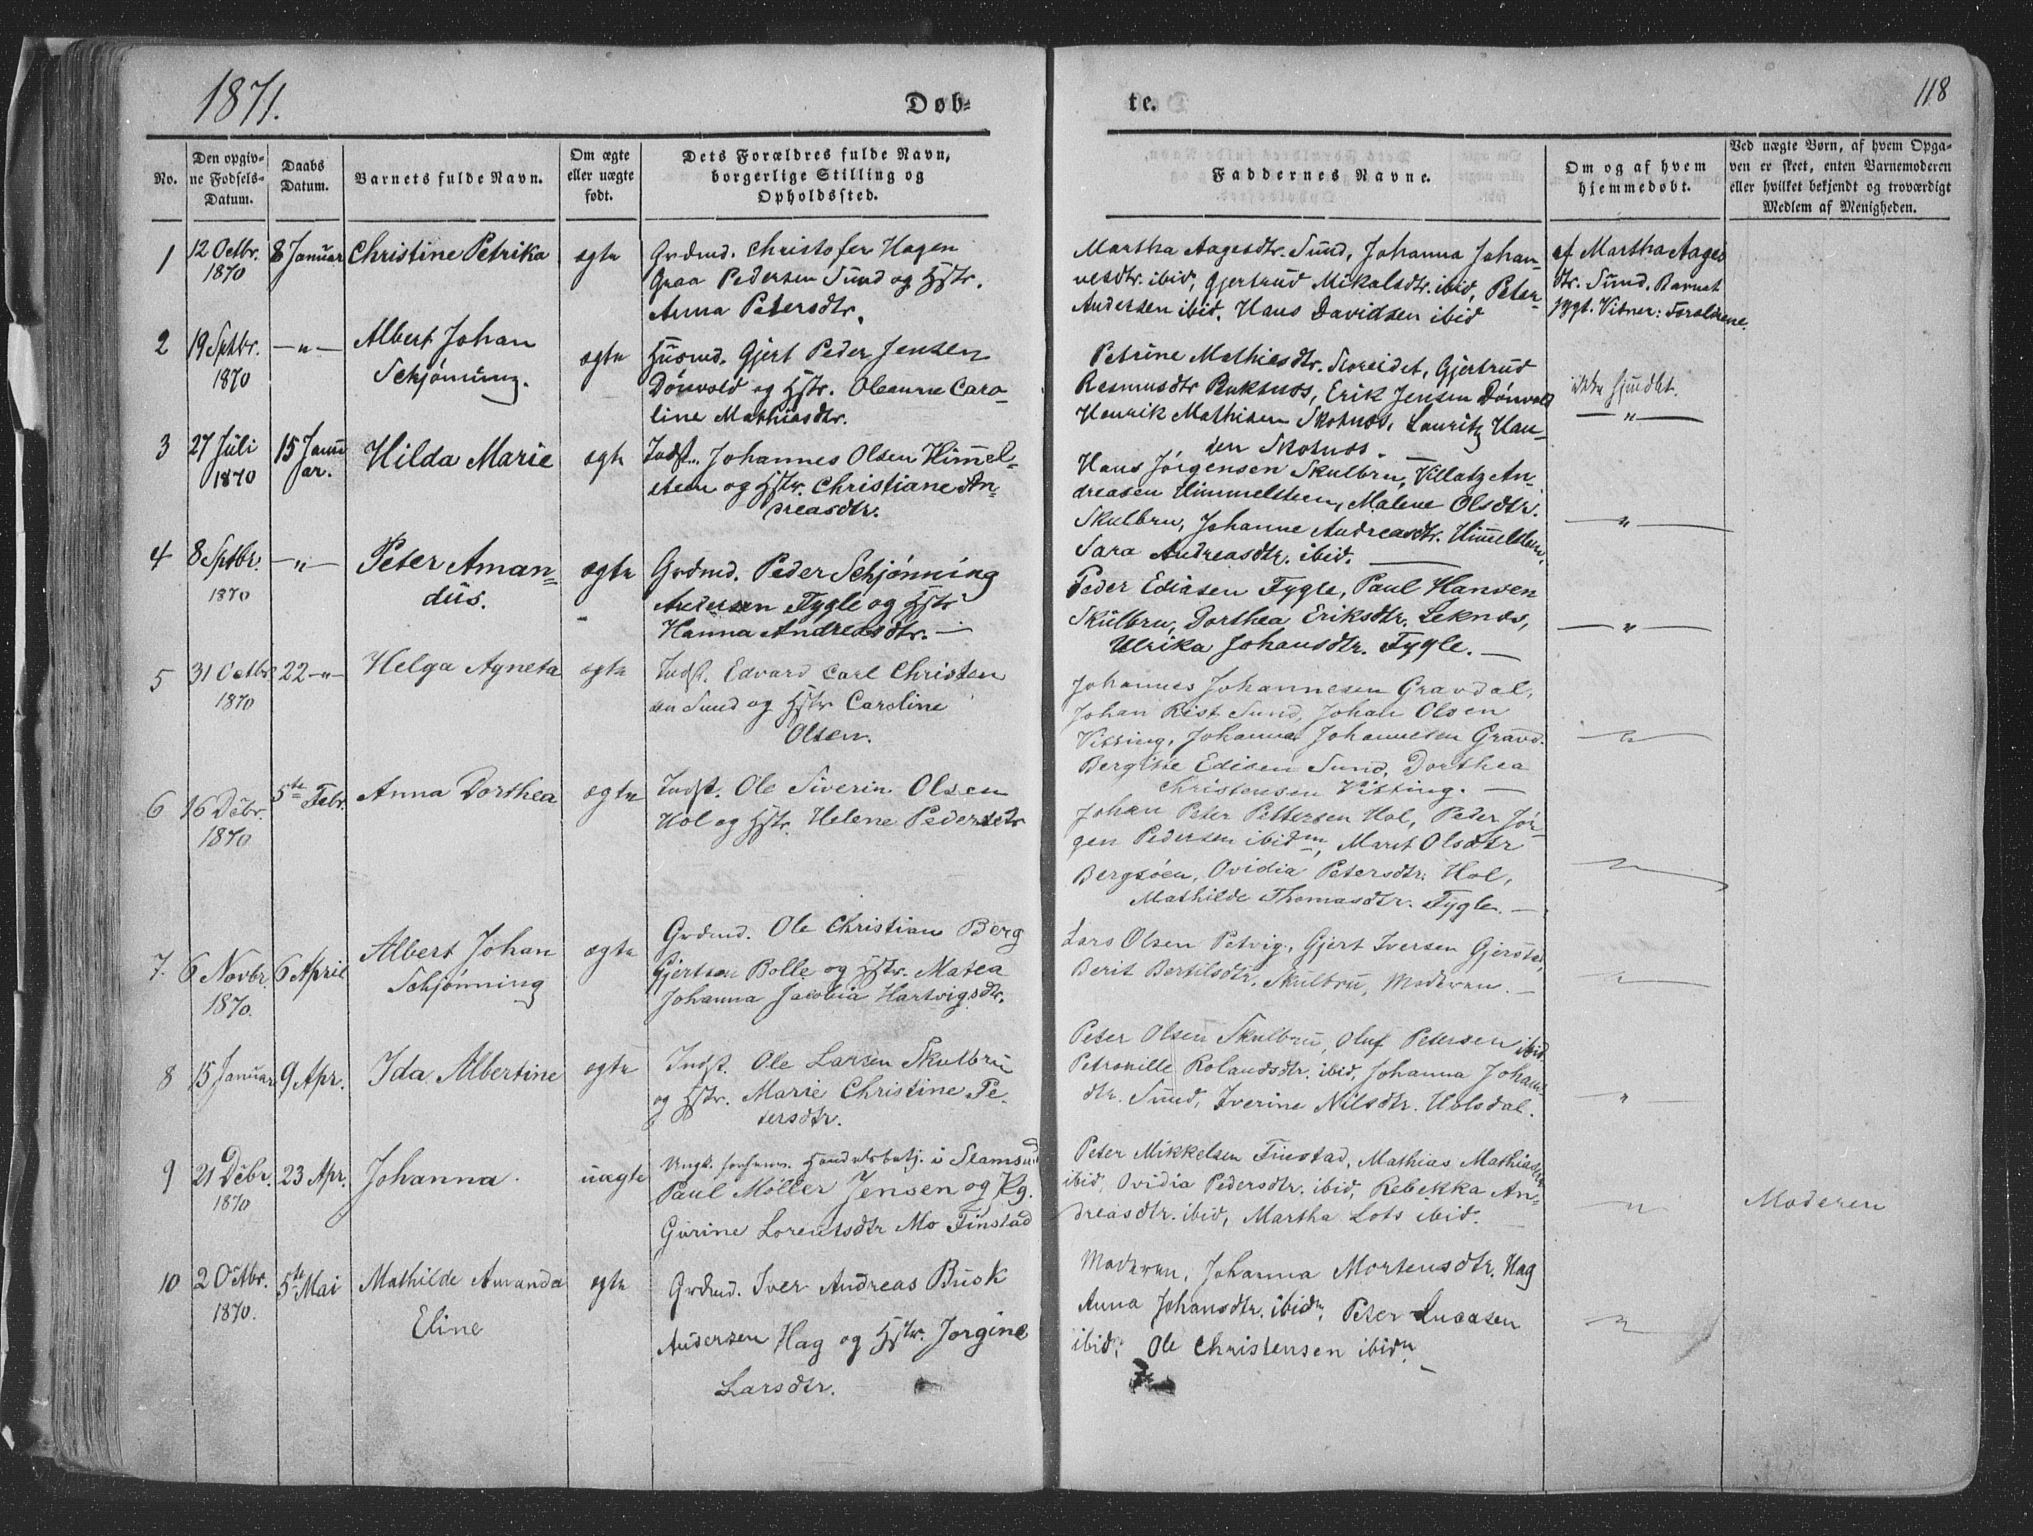 1871.
Døb-
te.
118
No.
Den opgiv-
ne Fødsels-
Datum.
Daabs
Datum.
Barnets fulde Navn.
Om ægte
eller uægte
født.
Dets Forældres fulde Navn,
borgerlige Stilling og
Opholdssted.
Faddernes Navne.
Om og af hvem
hjemmedøbt.
Ved uægte Børn, af hvem Opga-
ven er skeet, enten Barnemoderen
eller hvilket bekjendt og troværdigt
Medlem af Menigheden.
1
12 Octbr.
1870
8 Januar
Christine Petrika
ægte
Grdmd. Christofer Hagen
Graa Pedersen Sund og Hstr.
Anna Petersdtr.
Martha Aagesdtr. Sund, Johanna Johan-
nesdtr. ibid, Gjertrud Mikalsdtr. ibid, Peter
Andersen ibid, Hans Davidsen ibid
af Martha Aages
dtr. Sund. Barnet
sygt. Vidner: Forældrene.
2
19 Sptbr.
1870
—"—
Albert Johan
Schjønning.
ægte
Husmd. Gjert Peder Jensen
Dønvold og Hstr. Oleanne Caro-
line Mathiasdtr.
Petrine Mathiesdtr. Storeidet, Gjertrud
Rasmusdtr Buksnæs, Erik Jensen Dønvold
Henrik Mathisen Skotnæs, Lauritz Han-
sen Skotnæs.
ikke hjmdbt.
—"—
3
27 Juli
1870
15 Janu
ar.
Hilda Marie
ægte
Indst. Johannes Olsen Himmel-
steen og Hstr. Christiane An-
dreasdtr.
Hans Jørgensen Skulbru, Villatz An-
dreasen Himmelsteen, Malene Olsdtr.
Skulbru, Johanne Andreasdtr. Himmelsteen,
Sara Andreasdtr. ibid. —
—"—
4
8 Sptbr.
1870
—"—
Peter Aman-
dus.
ægte
Grdmd. Peder Schjønning
Andersen Fygle og Hstr
Hanna Andreasdtr. —
Peder Ediasen Fygle, Paul Hansen
Skulbru, Dorthea Eriksdtr. Leknes,
Ulrika Johansdtr. Fygle. —
—"—
5
31 Octbr.
1870
22 —"—
Helga Agneta
ægte
Indst. Edvard Carl Christen
sen Sund og Hstr Caroline
Olsen.
Johannes Johannesen Gravdal,
Johan Rist Sund, Johan Olsen
Vitting, Johanna Johannesen Gravd.
Bergitte Edisen Sund, Dorthea
Christensen Vitting. —
—"—
6
16 Dcbr.
1870
5te Febr.
Anna Dorthea
ægte
Indst. Ole Siverin Olsen
Hol og Hstr. Helene Pedersdtr
Johan Peter Pettersen Hol, Peder Jør-
gen Pedersen ibidm, Maret Olsdtr
Bergsøen, Ovidia Petersdtr. Hol,
Mathilde Thomasdtr. Fygle. —
—"—
7.
6 Novbr.
1870.
6 April
Albert Johan
Schjønning
ægte
Grdmd. Ole Christian Berg
Gjertsen Bolle og Hstr. Matea
Johanna Jacobia Hartvigsdtr.
Lars Olsen Petvig, Gjert Iversen Gjerstad,
Berit Bertilsdtr. Skulbru, Moderen. —
—"—
8
15 Januar
9 Apr.
Ida Albertine
ægte
Indst. Ole Larsen Skulbru
og Hstr. Marie Christine Pe-
tersdtr.
Peter Olsen Skulbru, Oluf Petersen ibid
Petronille Rolandsdtr. ibid, Johanna Johans
dtr. Sund, Iverine Nilsdtr. Holsdal.
—"—
9
21 Dcbr.
1870
23 Apr.
Johanna
uægte
Ungk. Handelsbetj. i Stamsund
Paul Møller Jensen og Pg.
Gurine Lorentsdtr Mo Finstad
Peter Mikkelsen Finstad, Mathias Mathiassen
ibid, Ovidia Pedersdtr. ibid, Rebekka An-
dreasdtr. ibid, Martha Lots ibid. —
—"—
Moderen
10
2 Octbr.
1870.
5te Mai
Mathilde Amanda
Eline
ægte
Grdmd. Iver Andreas Busk
Andersen Hag og Hstr. Jørgine
Larsdtr.
Moderen, Johanna Mortensdtr. Hag
Anna Johansdtr. ibidm, Peter Lucasen
ibid, Ole Christensen ibidm
—"—